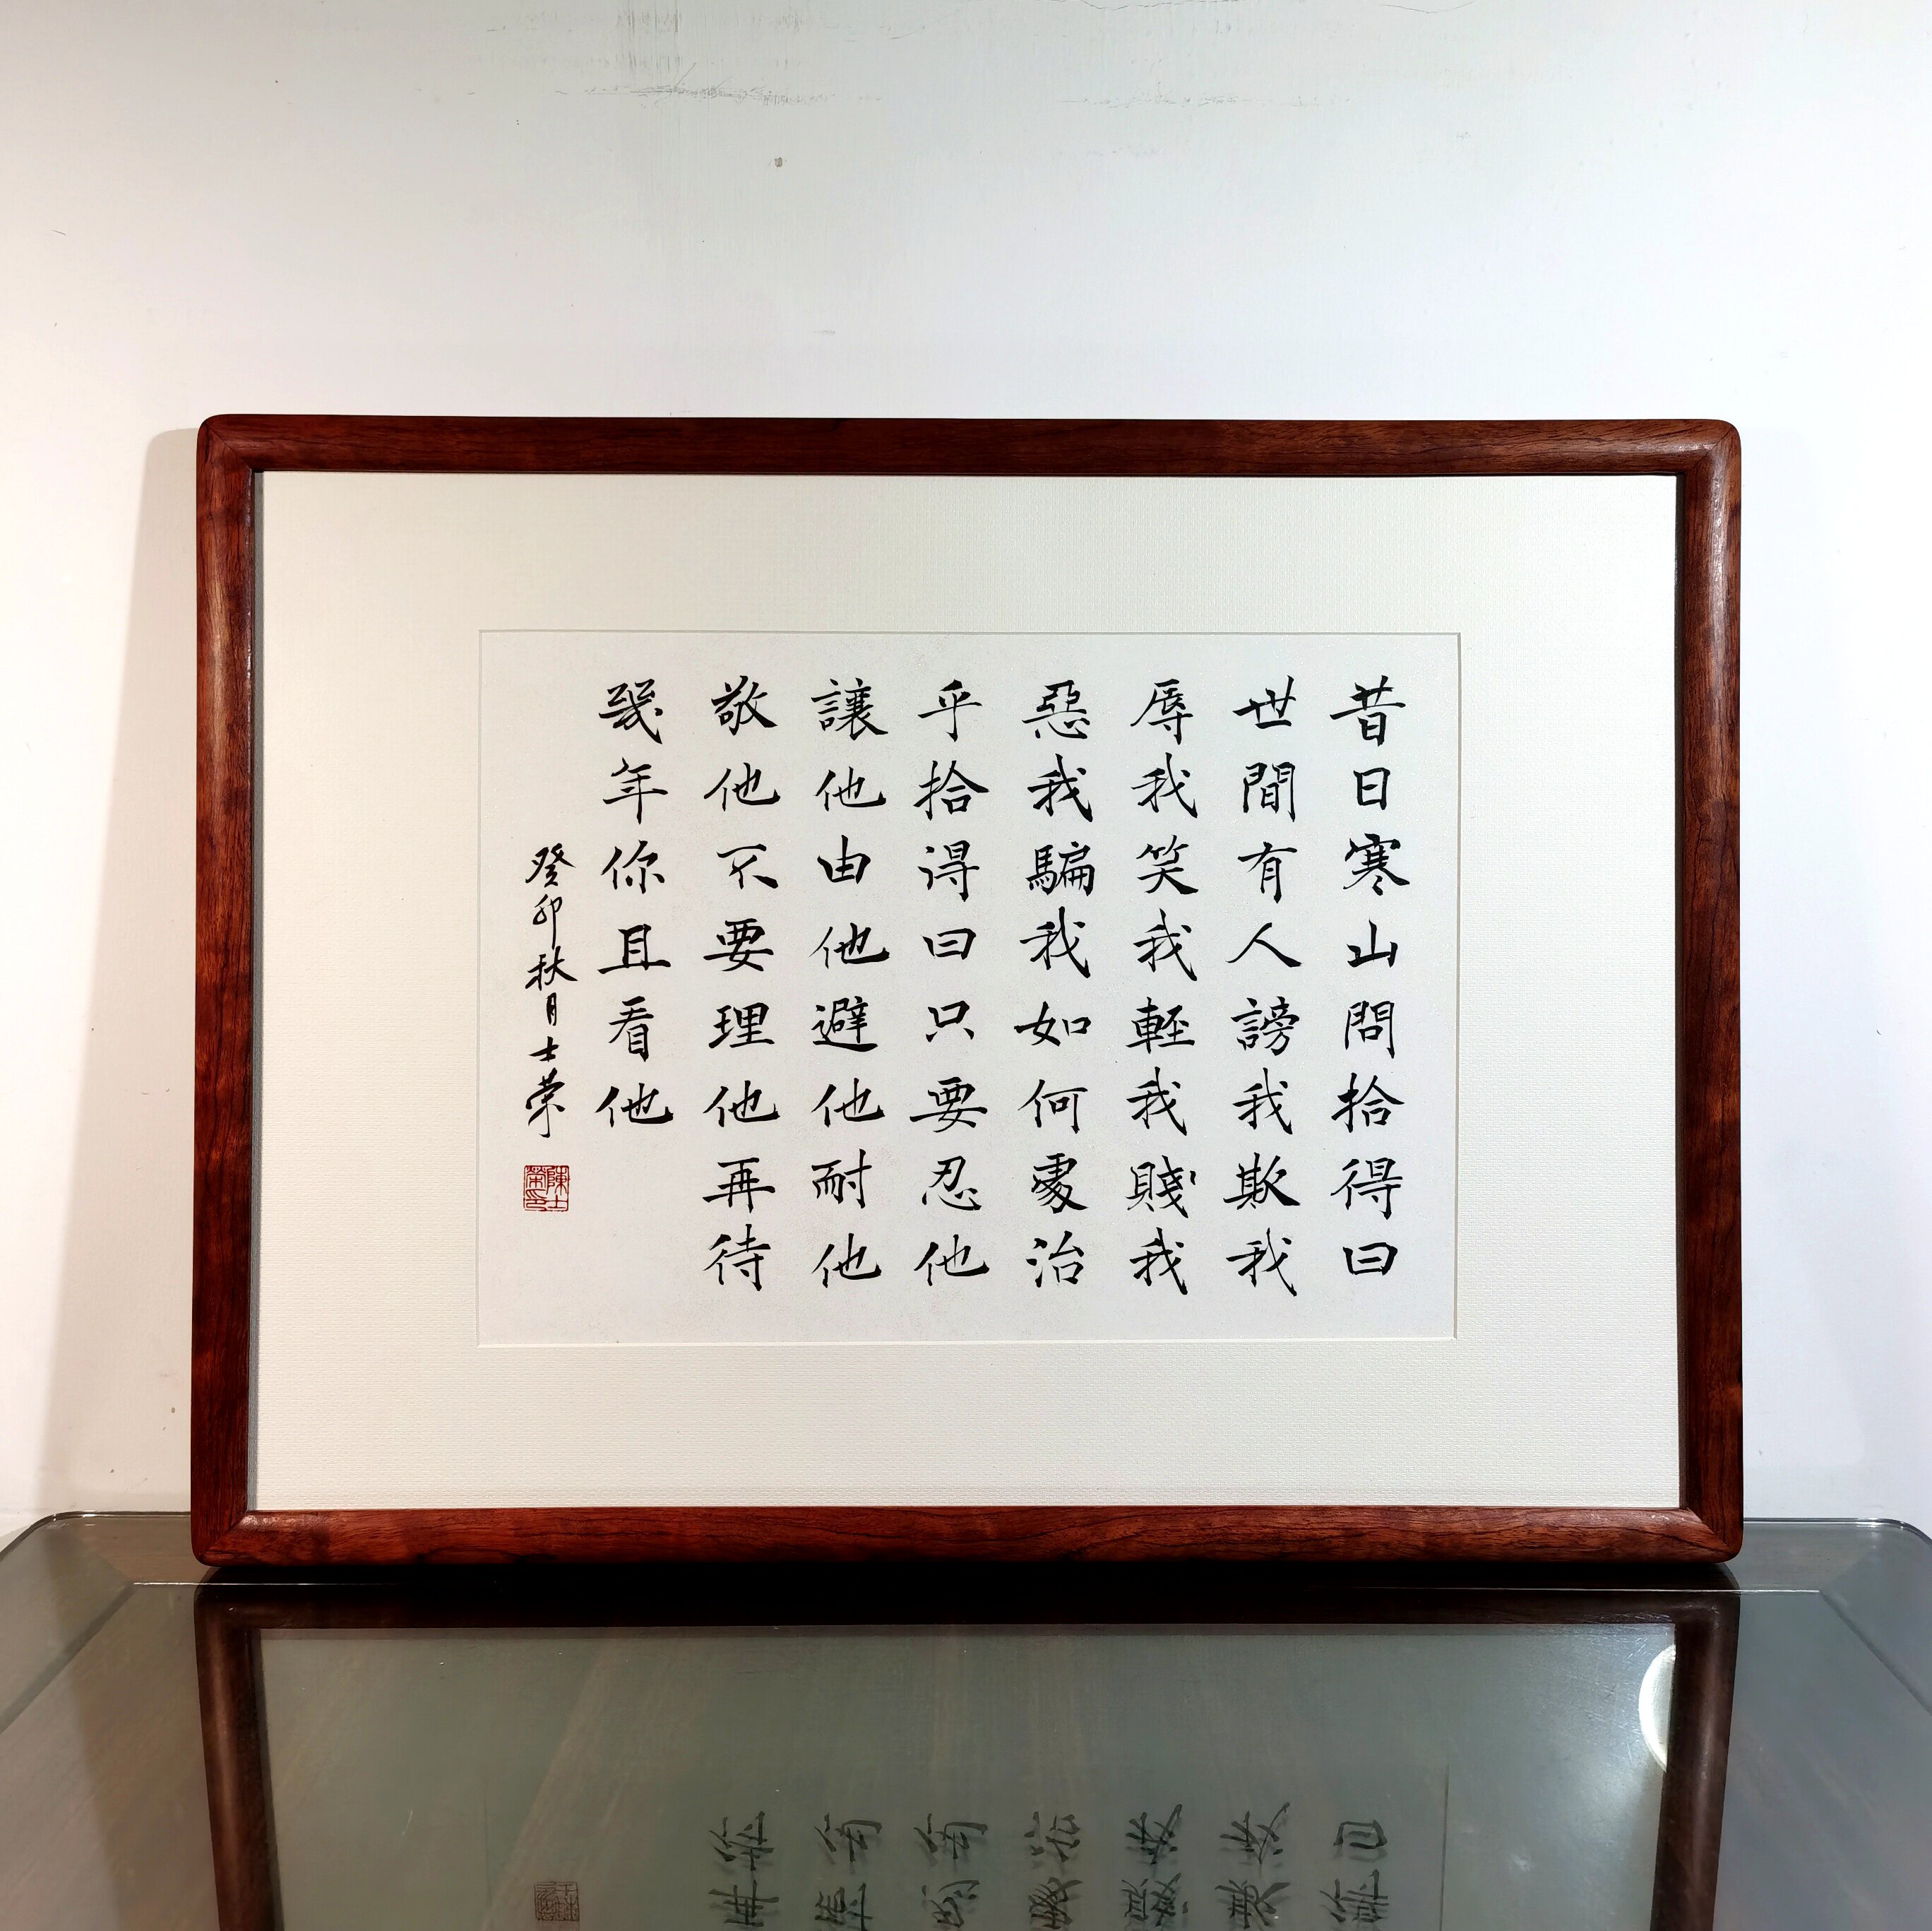 昔日寒山問拾得曰
世間有人謗我欺我
辱我笑我輕我賤我
惡我騙我如何處治
乎拾得曰只要忍他
讓他由他避他耐他
敬他不要理他再待
幾年你且看他
癸卯秋月士榮
陳士榮印